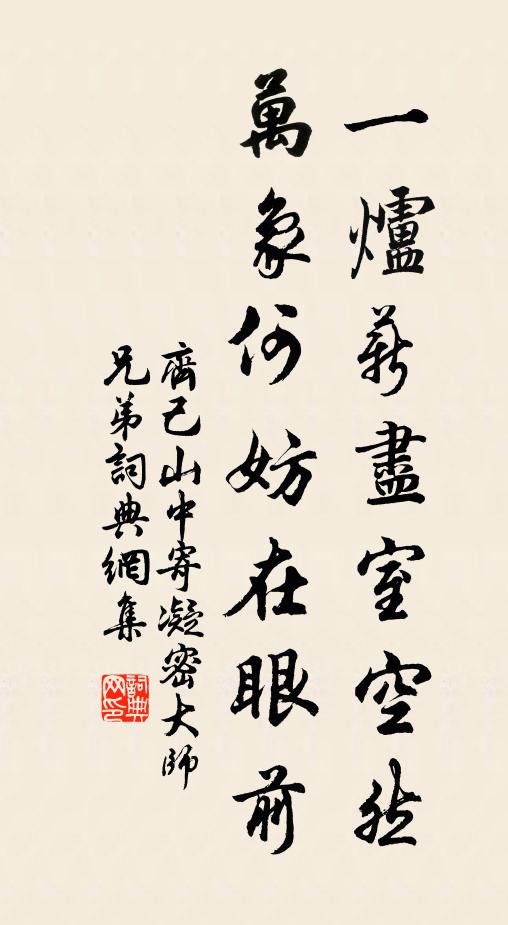 一爐薪盡室空然
萬象何妨在眼前
齊己山中寄凝密大師
兄弟詞典網集
詞典
网印